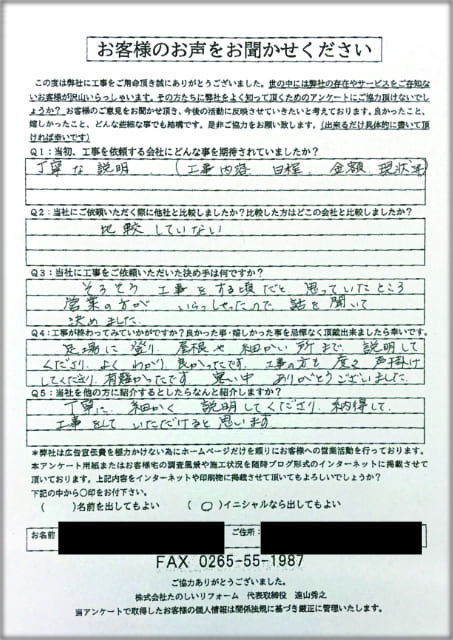 お客様のお声をお聞かせください
この度は弊社に工事をご用命頂き誠にありがとうございました。世の中には弊社の存在やサービスをご存知ない
お客様が沢山いらっしゃいます。その方たちに弊社をよく知って頂くためのアンケートにご協力頂けないでしょ
うか？ お客様のご意見をお聞かせ頂き、今後の活動に反映させていきたいと考えております。良かったこと、
嬉しかったこと、どんな些細な事でも結構です。是非ご協力をお願い致します。（出来るだけ具体的に書いて頂
ければ幸いです）
Q１：当初、工事を依頼する会社にどんな事を期待されていましたか？
丁寧な説明 （工事内容 日程、金額、現状等）
Q２：当社にご依頼いただく際に他社と比較しましたか？比較した方はどこの会社と比較しましたか？
比較していない
Q３：当社に工事をご依頼いただいた決め手は何ですか？
そろそろ 工事をする頃だと 思っていたところ
営業の方が いらっしゃったので 話を聞いて
決めました
Q４：工事が終わってみていかがですか？良かった事・嬉しかった事を忌憚なく頂戴出来ましたら幸いです。
足場に登り 屋根や細かい所まで 説明して
くださり、よくわかり良かったです。工事の方も 度々 声掛け
してくださり 有難かったです 暑い中 ありがとうございました
Q５：当社を他の方に紹介するとしたらなんと紹介しますか？
丁寧に、細かく 説明してくださり、納得して、
工事をして いただけると思います
＊弊社は広告宣伝費を極力かけない為にホームページだけを頼りにお客様への営業活動を行っております。
本アンケート用紙またはお客様宅の調査風景や施工状況を随時ブログ形式のインターネットに掲載させて
頂いております。上記内容をインターネットや印刷物に掲載させて頂いてもよろしいでしょうか？
下記の中から○印をお付下さい。
（ ）名前を出してもよい （ ○ ）イニシャルなら出してもよい
お名前 ご住所：
FAX 0265-55-1987
ご協力ありがとうございました。
株式会社たのしいリフォーム 代表取締役 遠山秀之
当アンケートで取得したお客様の個人情報は関係法規に基づき厳正に管理いたします。